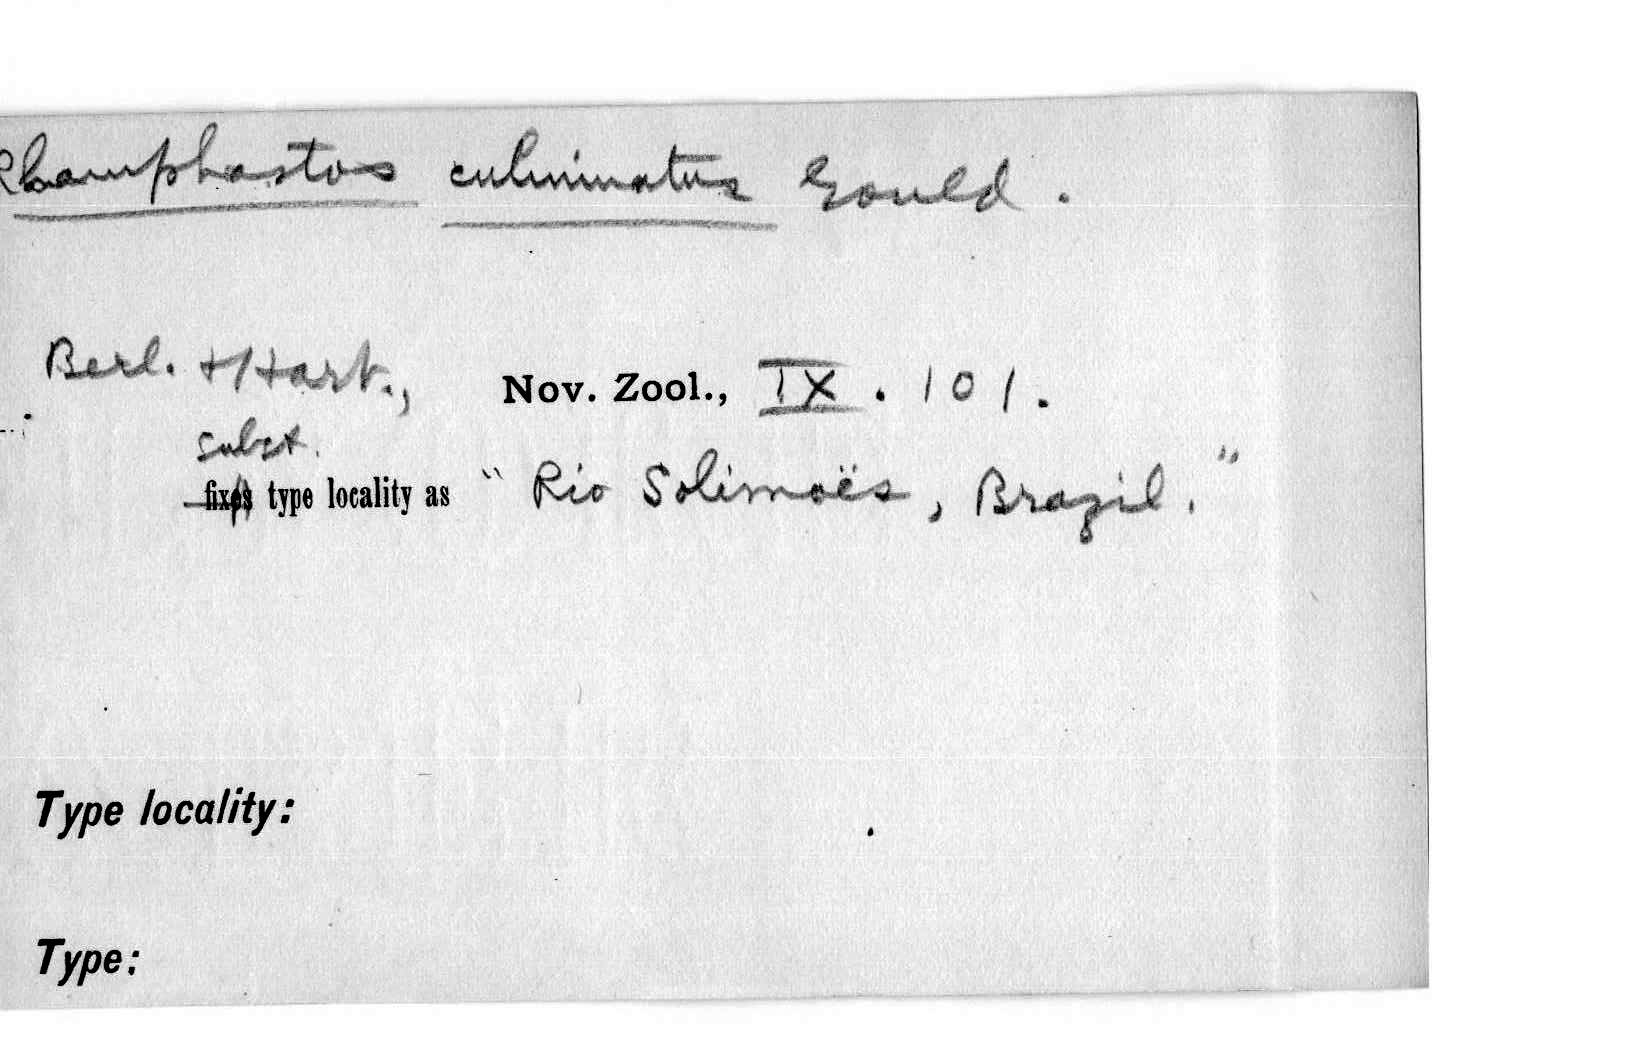 Rhamphastos culminatus Gould.
Berl. + Hart., Nov. Zool., IX. 101.
subst.
fixes type locality as "Rio Solimoës, Brazil."
Type locality:
Type: